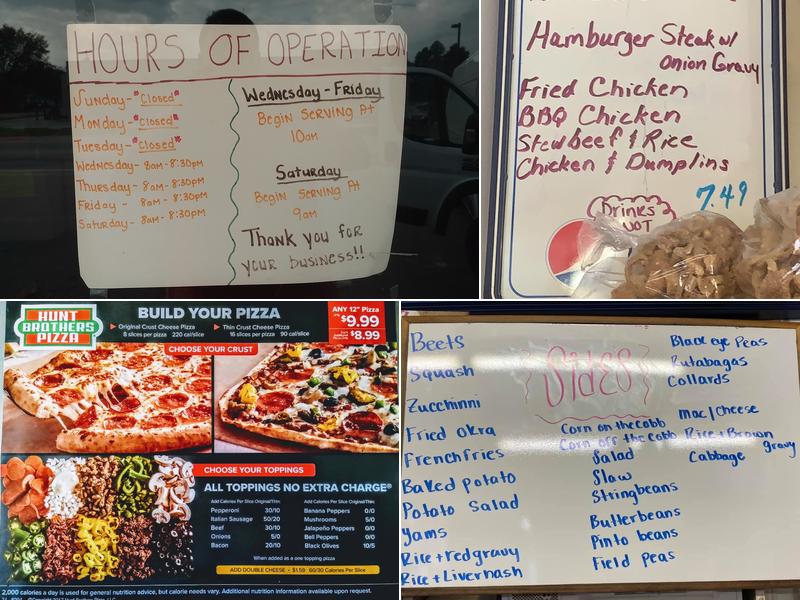 HOURS OF OPERATION
Sunday- *Closed*
Monday- *Closed*
Tuesday- *Closed*
Wednesday- 8am-8:30pm
Thursday- 8am-8:30pm
Friday - 8am-8:30pm
Saturday- 8am-8:30pm
Wednesday-Friday
Begin Serving At
10am
Saturday
Begin Serving At
9am
Thank you for
your business!!
Hamburger Steak w/
onion Gravy
Fried Chicken
BBQ Chicken
Stewbeef & Rice
Chicken & Dumplins
7.49
Drinks
NOT
HUNT
BROTHERS
PIZZA
BUILD YOUR PIZZA
Original Crust Cheese Pizza
8 slices per pizza 220 cal/slice
Thin Crust Cheese Pizza
16 slices per pizza 90 cal/slice
ANY 12" Pizza
$9.99
$8.99
CHOOSE YOUR CRUST
CHOOSE YOUR TOPPINGS
ALL TOPPINGS NO EXTRA CHARGE®
Add Calories Per Slice Original/Thin:
Pepperoni 30/10
Italian Sausage 50/20
Beef 30/10
Onions 5/0
Bacon 20/10
Add Calories Per Slice Original/Thin:
Banana Peppers 0/0
Mushrooms 5/0
Jalapeño Peppers 0/0
Bell Peppers 0/0
Black Olives 10/5
When added as a one topping pizza
ADD DOUBLE CHEESE - $1.59 60/30 Calories Per Slice
2,000 calories a day is used for general nutrition advice, but calorie needs vary. Additional nutrition information available upon request.
Sides
Beets
Squash
Zucchinni
Fried Okra
Frenchfries
Baked Potato
Potato Salad
Yams
Rice+redgravy
Rice+Livernash
Corn on the cobb
Corn off the cobb
Salad
Slaw
Stringbeans
Butterbeans
Pinto beans
Field peas
Black eye Peas
Rutabagas
Collards
mac/cheese
Rice+Brown
gravy
Cabbage